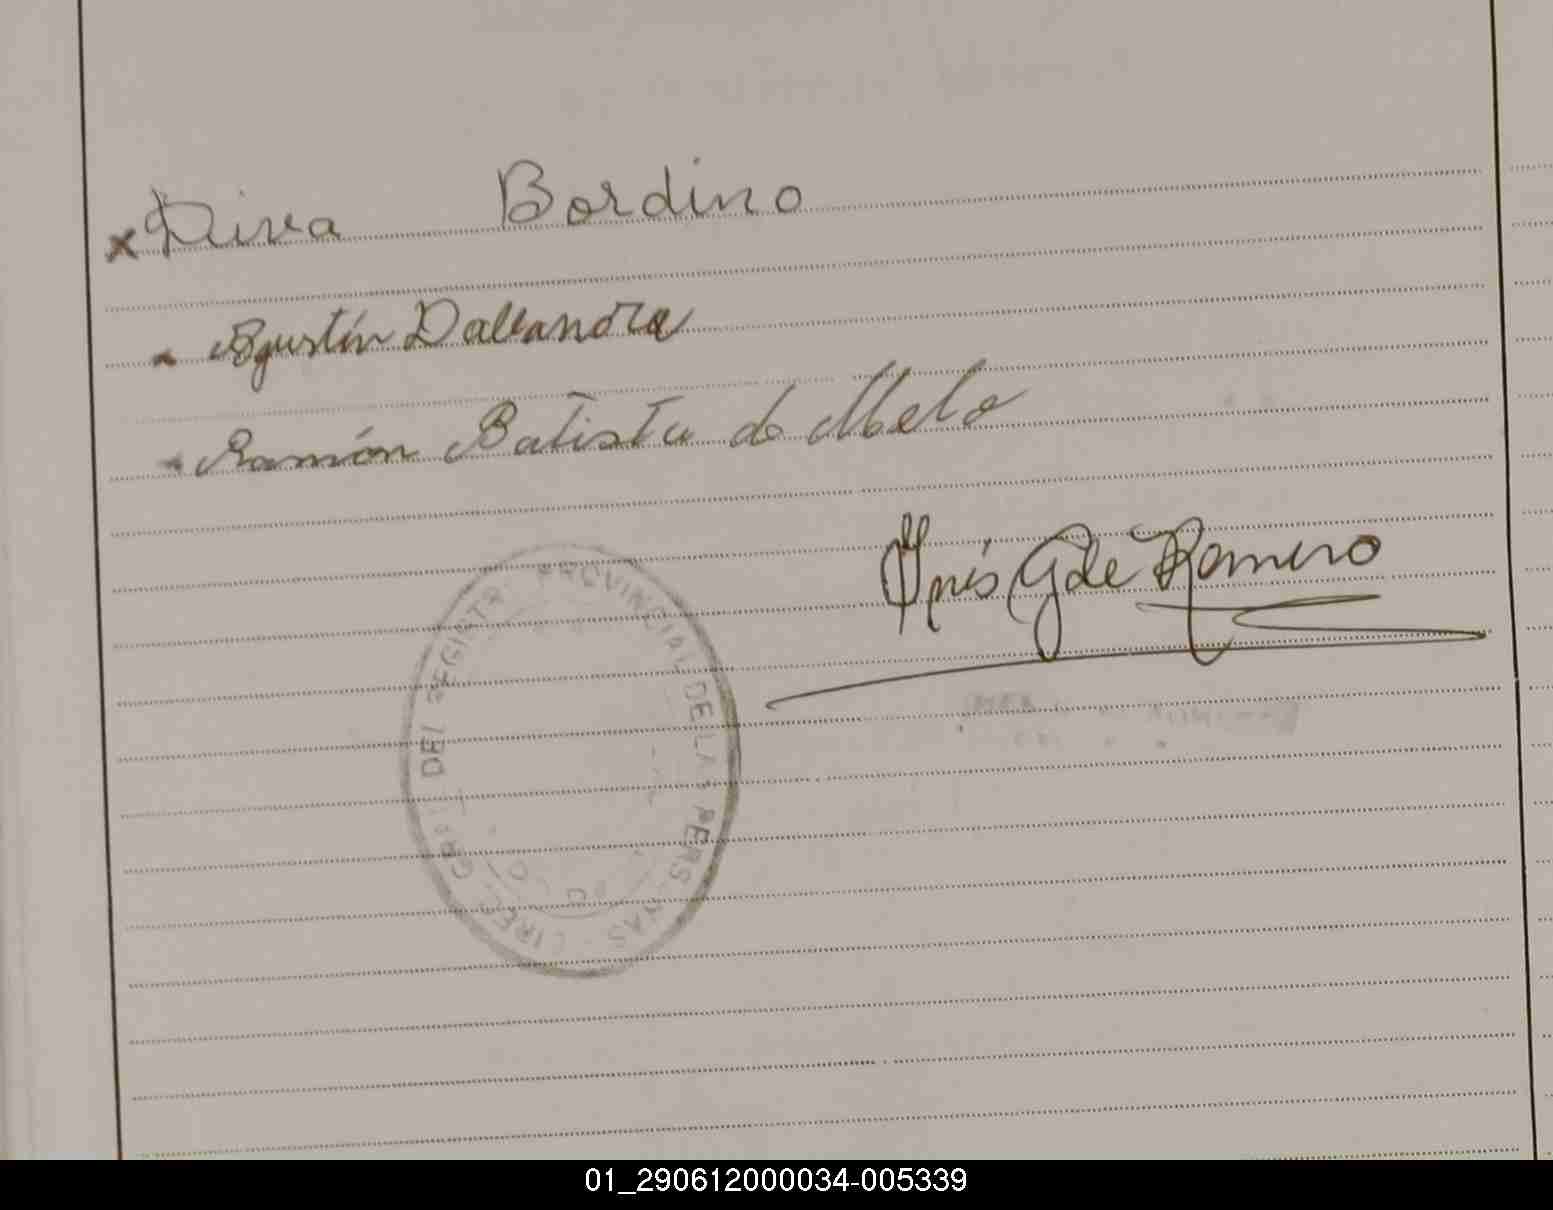 x Diva Bordino
Agustín Dallandra
Ramón Batista do Melo
Inés G de Romero
DEL REGISTR PROVINCIAL DE LA PERS NAS
01_290612000034-005339